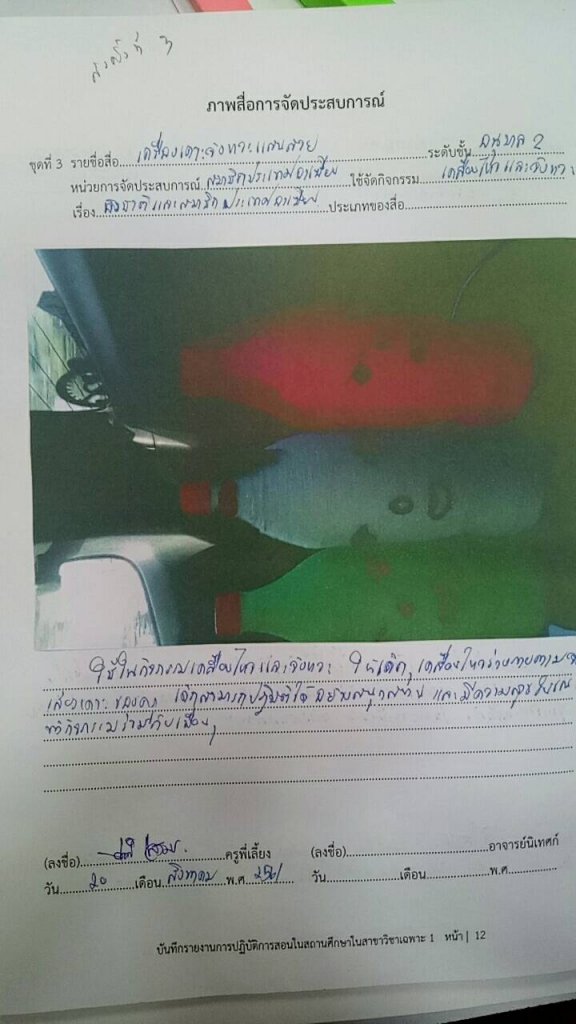 ส่งครั้งที่ 3
ภาพสื่อการจัดประสบการณ์
ชุดที่ 3 รายชื่อสื่อ...เครื่องเคาะจังหวะแสนสวย...ระดับชั้น...อนุบาล 2
หน่วยการจัดประสบการณ์...สมาชิกประเทศอาเซียน...ใช้จัดกิจกรรม...เคลื่อนไหวและจังหวะ
เรื่อง...ธงชาติและสมาชิกประเทศอาเซียน...ประเภทของสื่อ...
ใช้ในกิจกรรมเคลื่อนไหวและจังหวะ ให้เด็กๆ เคลื่อนไหวร่างกายตาม
เสียงเคาะของครู เด็กสามารถปฏิบัติได้อย่างสนุกสนาน และมีความสุขในขณะ
ทำกิจกรรมร่วมกับเพื่อนๆ
(ลงชื่อ)...ครูพี่เลี้ยง (ลงชื่อ)...อาจารย์นิเทศก์
วัน...20...เดือน...สิงหาคม...พ.ศ...2561 วัน...เดือน...พ.ศ...
บันทึกรายงานการปฏิบัติการสอนในสถานศึกษาในสาขาวิชาเฉพาะ 1 หน้า | 12